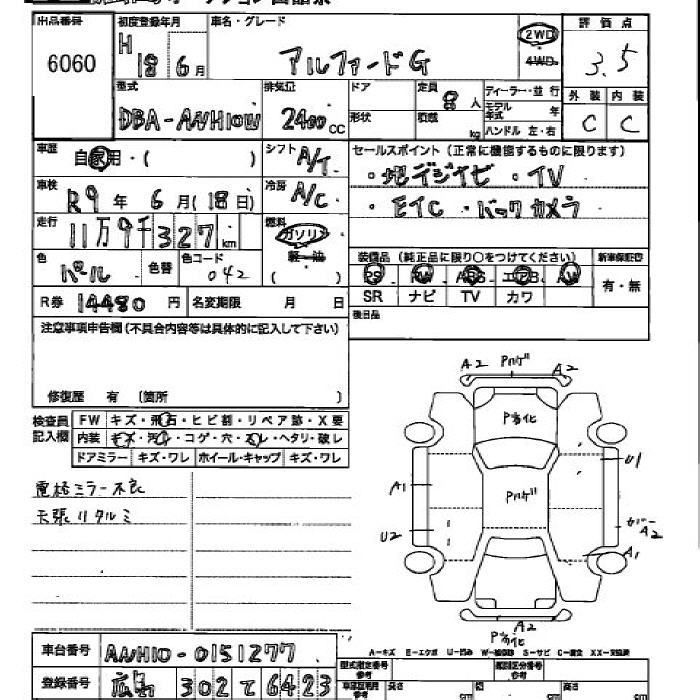 出品番号 初度登録年月 車名・グレード 評価点
6060 H 18 6月 アルファードG 2WD 4WD 3.5
型式 排気量 ドア 定員 8人 ディーラー・並行 外装 内装
DBA-ANH10W 2400cc 形状 積載 kg モデル年式 年 C C
ハンドル 左・右
車歴 自家用・( ) シフト A/T セールスポイント(正常に機能するものに限ります)
車検 R9年 6月(18日) 冷房 A/C ・地デジナビ ・TV
・ETC ・バックカメラ
走行 11万9千327km 燃料 ガソリン 軽・油 ( )
装備品(純正品に限り〇をつけてください) 新車保証書
色 パール 色替 色コード 042 PS PW ABS エアB AW 有・無
SR ナビ TV カワ
R券 14480円 名変期限 月 日 後日品
注意事項申告欄(不具合内容等は具体的に記入して下さい)
修復歴 有 (箇所 )
検査員記入欄 FW キズ・飛石・ヒビ割・リペア跡・X要
内装 キズ・汚れ・コゲ・穴・スレ・ヘタリ・破レ
ドアミラー キズ・ワレ ホイール・キャップ キズ・ワレ
電格ミラー不良
天張りタルミ
A2 Pハゲ A2
P劣化
U1
A1 Pハゲ
U2 A2
A1
A2
P劣化
A-キズ E-エクボ U-凹み W-補修跡 S-サビ C-腐食 XX-交換済
車台番号 ANH10-0151277
登録番号 広島 302 て 6423
型式指定番号 参考 類別区分番号 参考
長さ cm 幅 cm 高さ cm